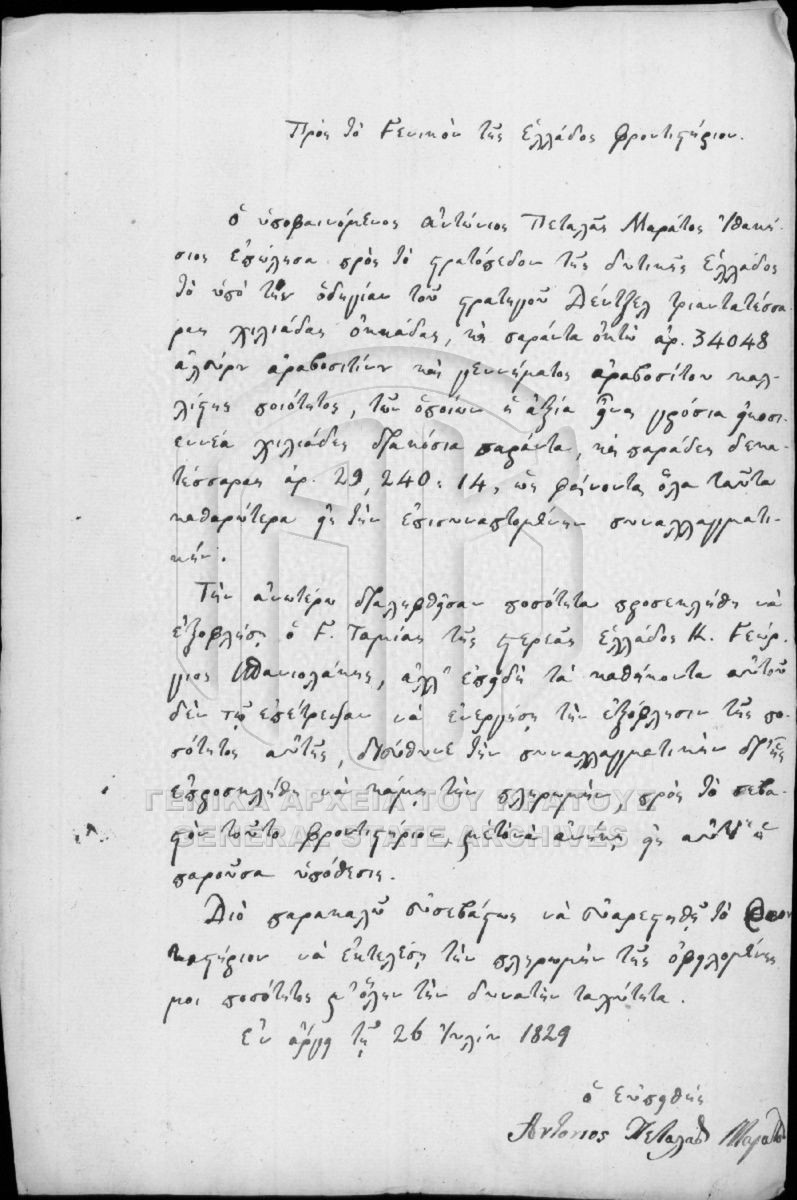 Πρὸς τὸ Γενικὸν τῆς Ἑλλάδος Φροντιστήριον.
Ὁ ὑποβαινόμενος Ἀντώνιος Πεταλᾶς Μαράτος Ἰθακή-
σιος ἐπώλησα πρὸς τὸ στρατόπεδον τῆς δυτικῆς Ἑλλάδος
τὸ ὑπὸ τὴν ὁδηγίαν τοῦ στρατηγοῦ Δέντζελ τριαντατέσσα-
ρας χιλιάδας ὀκκάδας, καὶ σαράντα ὀκτὼ ἀρ. 34048
ἀλεύρι ἀραβοσιτίου καὶ γεννήματος ἀραβοσίτου καλ-
λίστης ποιότητος, τῶν ὁποίων ἡ ἀξία εἶναι γρόσια εἰκοσι-
εννέα χιλιάδες διακόσια σαράντα, καὶ παράδες δεκα-
τέσσαρας ἀρ. 29,240: 14, ὡς φαίνονται ὅλα ταῦτα
καθαρώτερα εἰς τὴν ἐπισυναπτομένην συναλλαγματι-
κήν.
Τὴν ἀνωτέρω διαληφθῆσαν ποσότητα προσεκλήθη νὰ
ἐξοφλήσῃ ὁ Γ. Ταμίας τῆς στερεᾶς Ἑλλάδος Κ. Γεώρ-
γιος, ἀλλ' ἐπειδὴ τὰ καθήκοντα αὐτοῦ
δὲν τῷ ἐπέτρεψαν νὰ ἐνεργήσῃ τὴν ἐξόφλησιν τῆς πο-
σότητος αὐτῆς, διεύθυνε τὴν συναλλαγματικὴν δι' ἧς
ἐπροσκλήθη νὰ κάμῃ τὴν πληρωμήν, πρὸς τὸ σεβα-
στὸν τοῦτο φροντιστήριον, ὡς αὐτὸ ἡ
παροῦσα ὑπόθεσις.
Διὸ παρακαλῶ εὐσεβάστως νὰ εὐαρεστηθῇ τὸ Φρον
τιστήριον νὰ ἐκτελέσῃ τὴν πληρωμὴν τῆς ὀφειλομένης
μοι ποσότητος μ' ὅλην τὴν δυνατὴν ταχύτητα.
Ἐν Ἄργει τῇ 26 Ἰουλίου 1829
Ὁ εὐπειθὴς
Αντονιος Πεταλας Μαρατος
ΓΕΝΙΚΑ ΑΡΧΕΙΑ ΤΟΥ ΚΡΑΤΟΥΣ
GENERAL STATE ARCHIVES